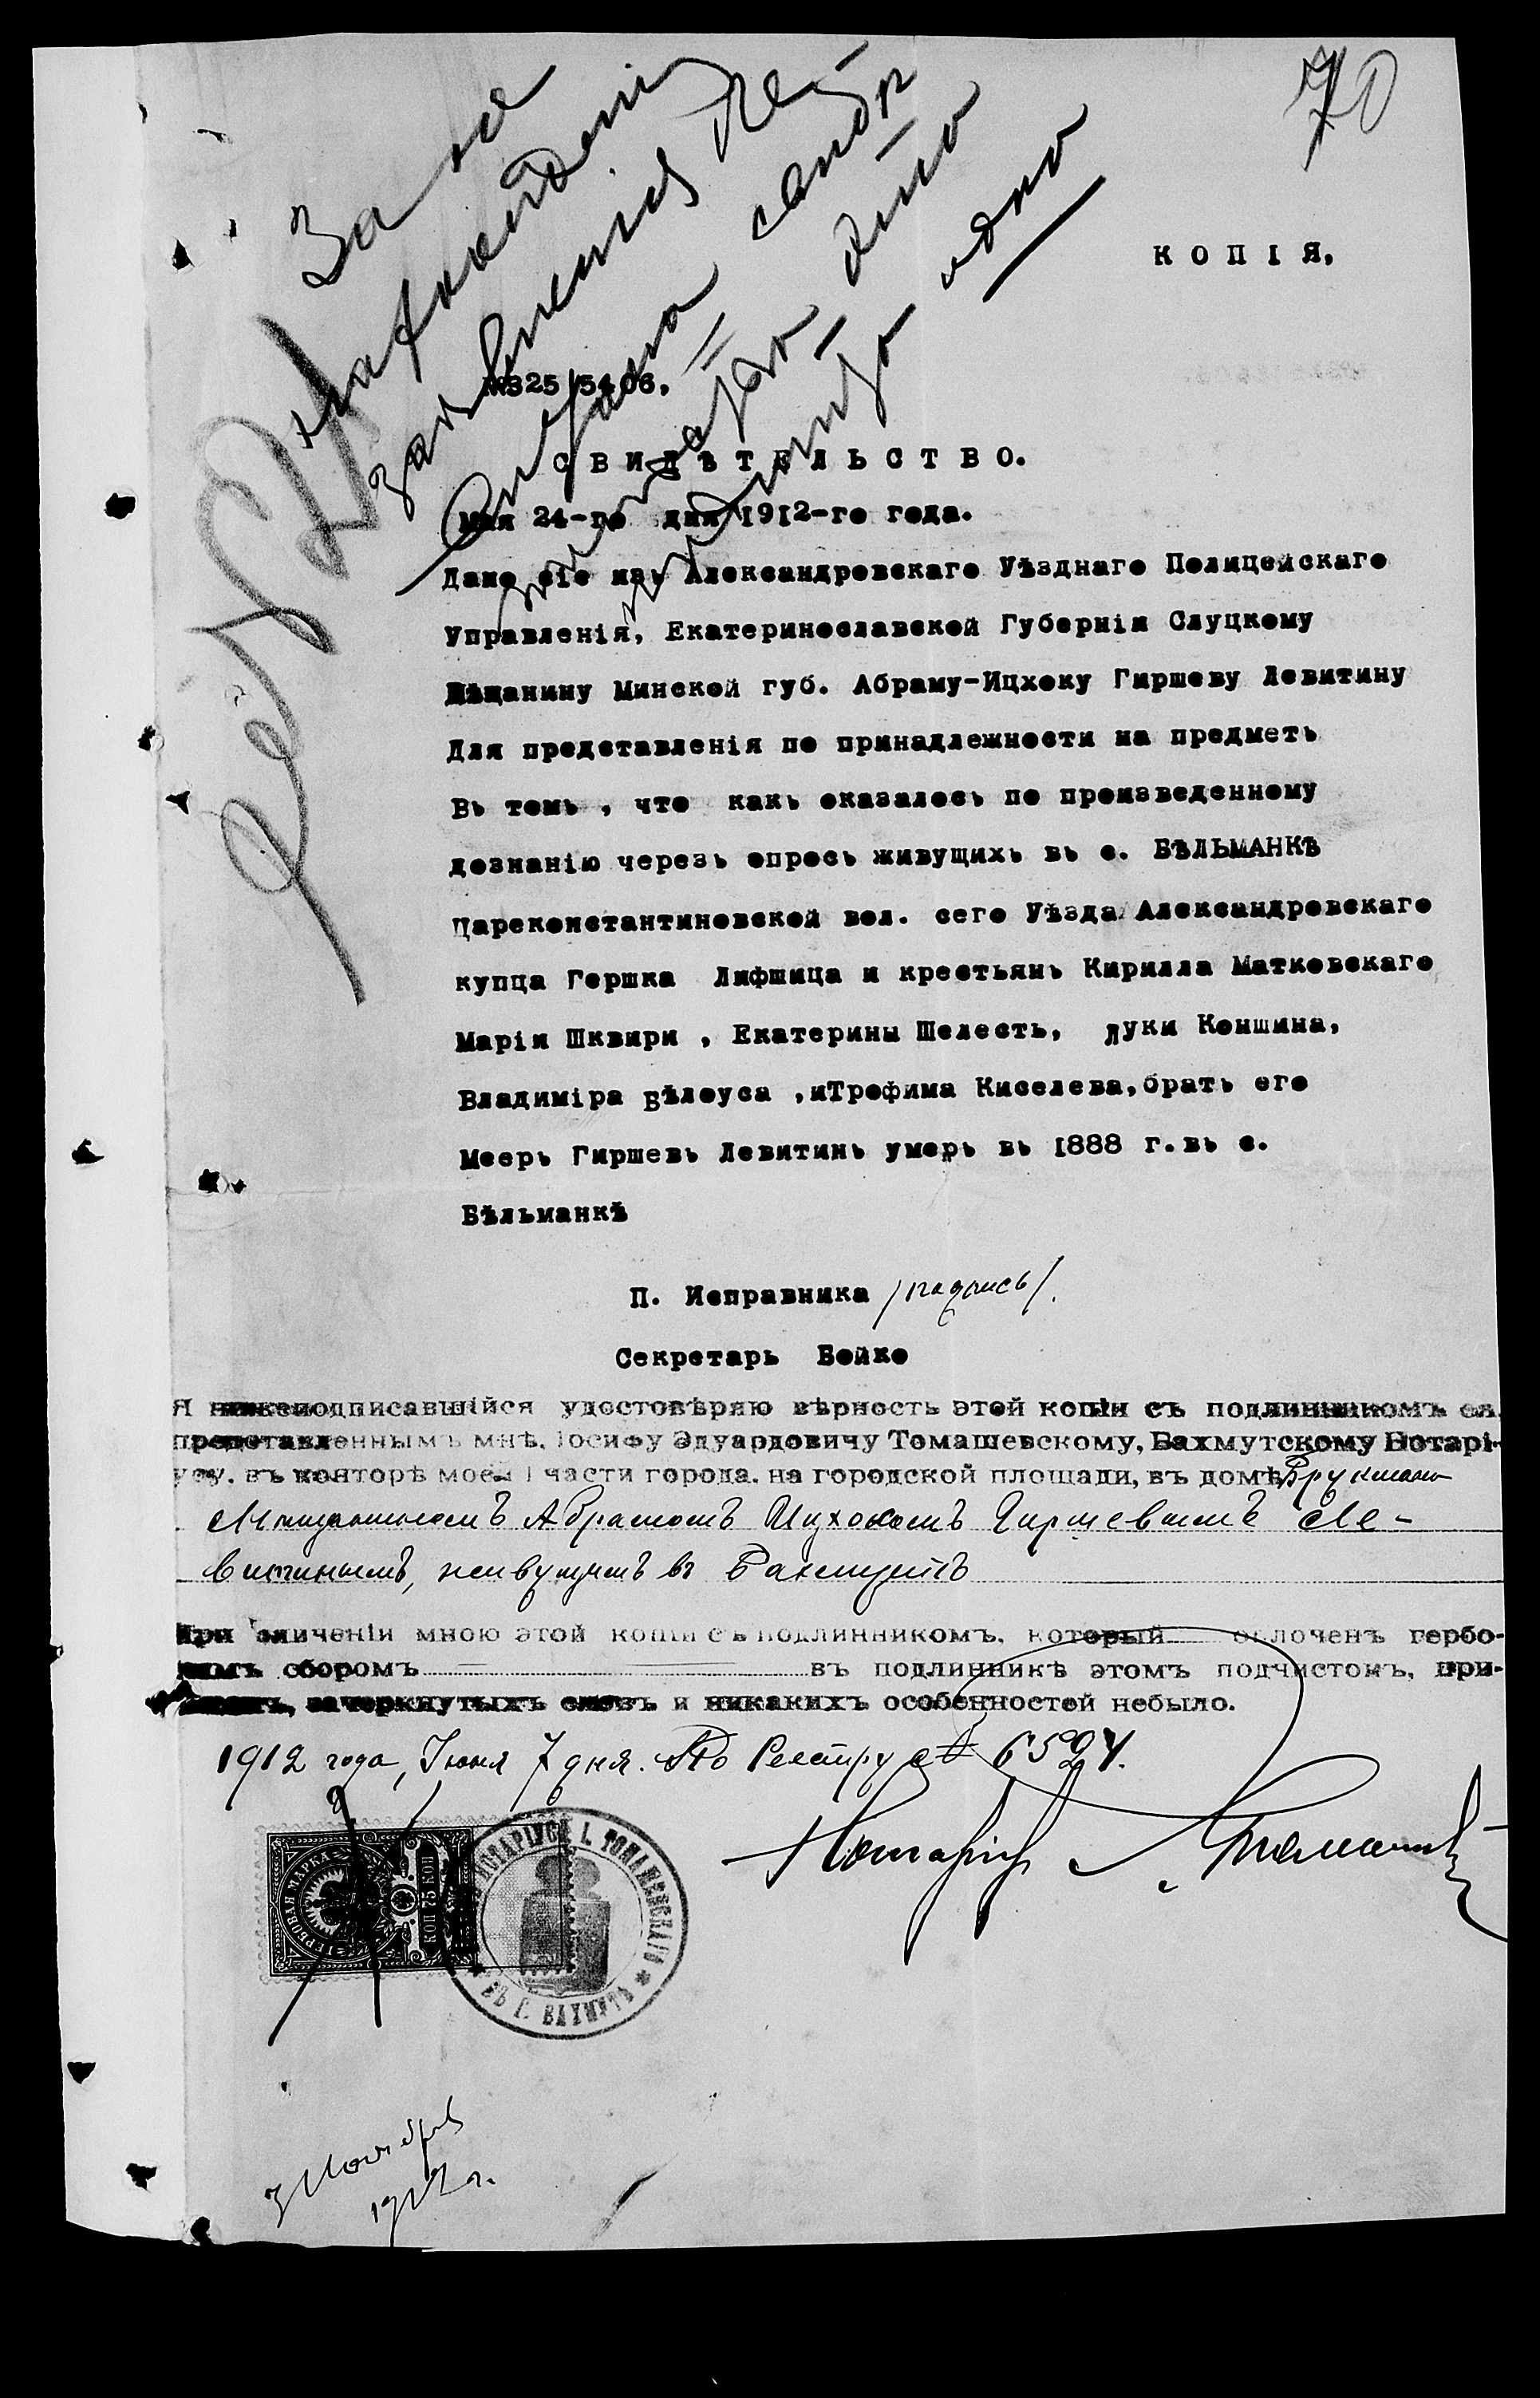 70
КОПІЯ.
За не
нахожденіи
заявленія
№325/5406.
СВИДѢТЕЛЬСТВО.
Мая 24-го дня 1912-го года.
Дано сіе изъ Александровскаго Уѣзднаго Полицейскаго
Управленія, Екатеринославской Губерніи Слуцкому
Мѣщанину Минской губ. Абраму-Ицхоку Гиршеву Левитину
Для представленія по принадлежности на предметъ
Въ томъ , что какъ оказалось по произведенному
дознанію черезъ опросъ живущихъ въ с. БѢЛЬМАНКѢ
Цареконстантиновской вол. сего Уѣзда Александровскаго
купца Гершка Лифшица и крестьянъ Кирилла Матковскаго
Маріи Шквири , Екатерины Шелестъ, Луки Коншина,
Владиміра Бѣлоуса ,иТрофима Киселева,братъ его
Мееръ Гиршевъ Левитинъ умеръ въ 1888 г.въ с.
Бѣльманкѣ
П. Исправника /подпись/.
Секретарь Бойко
Я нижеподписавшійся удостовѣряю вѣрность этой копіи съ подлинникомъ ея,
представленнымъ мнѣ, Іосифу Эдуардовичу Томашевскому, Бахмутскому Нотарі-
усу. въ конторѣ моей 1 части города. на городской площади, въ домѣ Брукмана
Мѣщаниномъ Абрамомъ Ицхокомъ Гиршевымъ Ле-
витинымъ, живущимъ въ Бахмутѣ
При сличеніи мною этой копіи съ подлинникомъ, который оплоченъ гербо-
вымъ сборомъ въ подлинникѣ этомъ подчистокъ, при-
писокъ, зачеркнутыхъ словъ и никакихъ особенностей небыло.
1912 года, Іюня 7 дня. По Реестру № 6594.
Нотаріусъ Томашевскій
НОТАРІУСЪ І. ТОМАШЕВСКАГО * ВЪ Г. БАХМУТѢ
ГЕРБОВАЯ МАРКА
КОП 75 КОП
3 Ноября
1912 г.